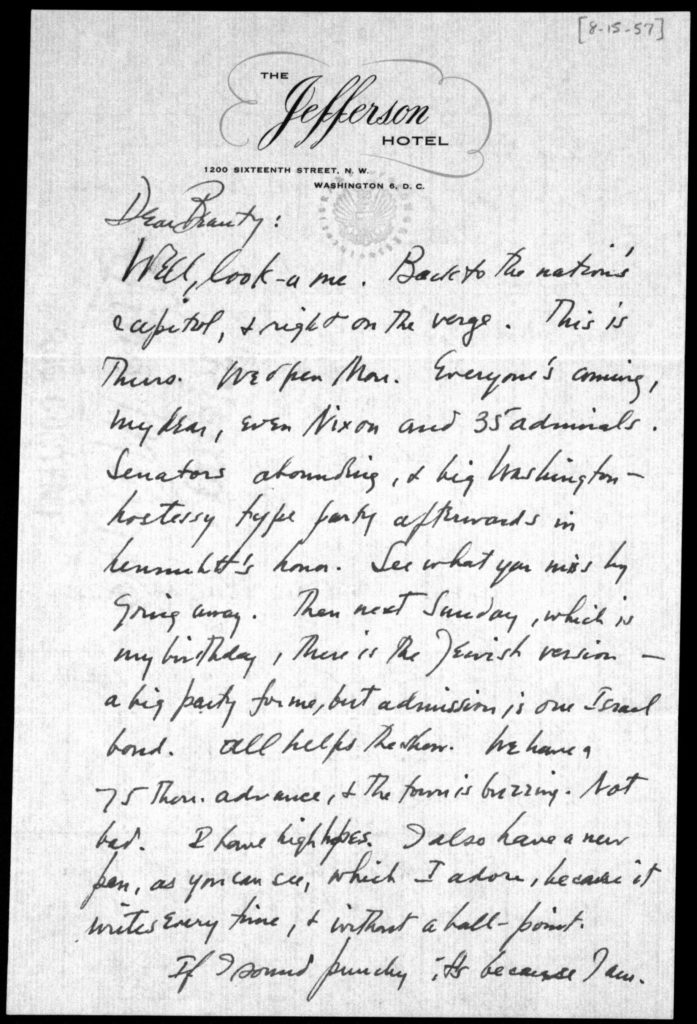 [8-15-57]
THE
Jefferson
HOTEL
1200 SIXTEENTH STREET, N. W.
WASHINGTON 6, D. C.
Dear Beauty:
Well, look-a me. Back to the nation's
capitol, & right on the verge. This is
Thurs. We open Mon. Everyone's coming,
my dear, even Nixon and 35 admirals.
Senators abounding, & big Washington-
hostessy type party afterwards in
honor. See what you miss by
going away. Then next Sunday, which is
my birthday, there is the Jewish version —
a big party for me, but admission is one Israel
bond. All helps the show. We have a
75 thou. advance, & the town is buzzing. Not
bad. I have high hopes. I also have a new
pen, as you can see, which I adore, because it
writes every time, & without a ball-point.
If I sound punchy it's because I am.